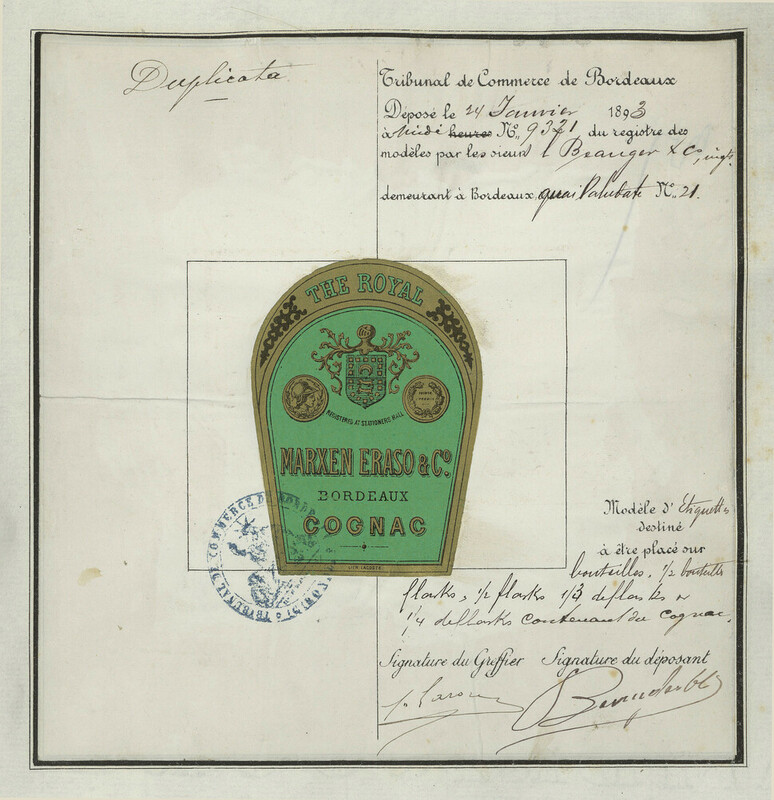 Duplicata
Tribunal de Commerce de Bordeaux
Déposé le 24 Janvier 1893
à Midi heures N° 9321 du registre des
modèles par les sieurs Beauger & Co,
demeurant à Bordeaux, quai Paludate N° 21.
THE ROYAL
REGISTERED AT STATIONERS HALL
MARXEN ERASO & Co.
BORDEAUX
COGNAC
LITH. LACOSTE
TRIBUNAL DE COMMERCE DE
Modèle d'Etiquettes
destiné
à être placé sur
bouteilles, 1/2 bouteilles
flasks, 1/2 flasks 1/3 de flasks &
1/4 de flasks contenant du cognac.
Signature du Greffier Signature du déposant